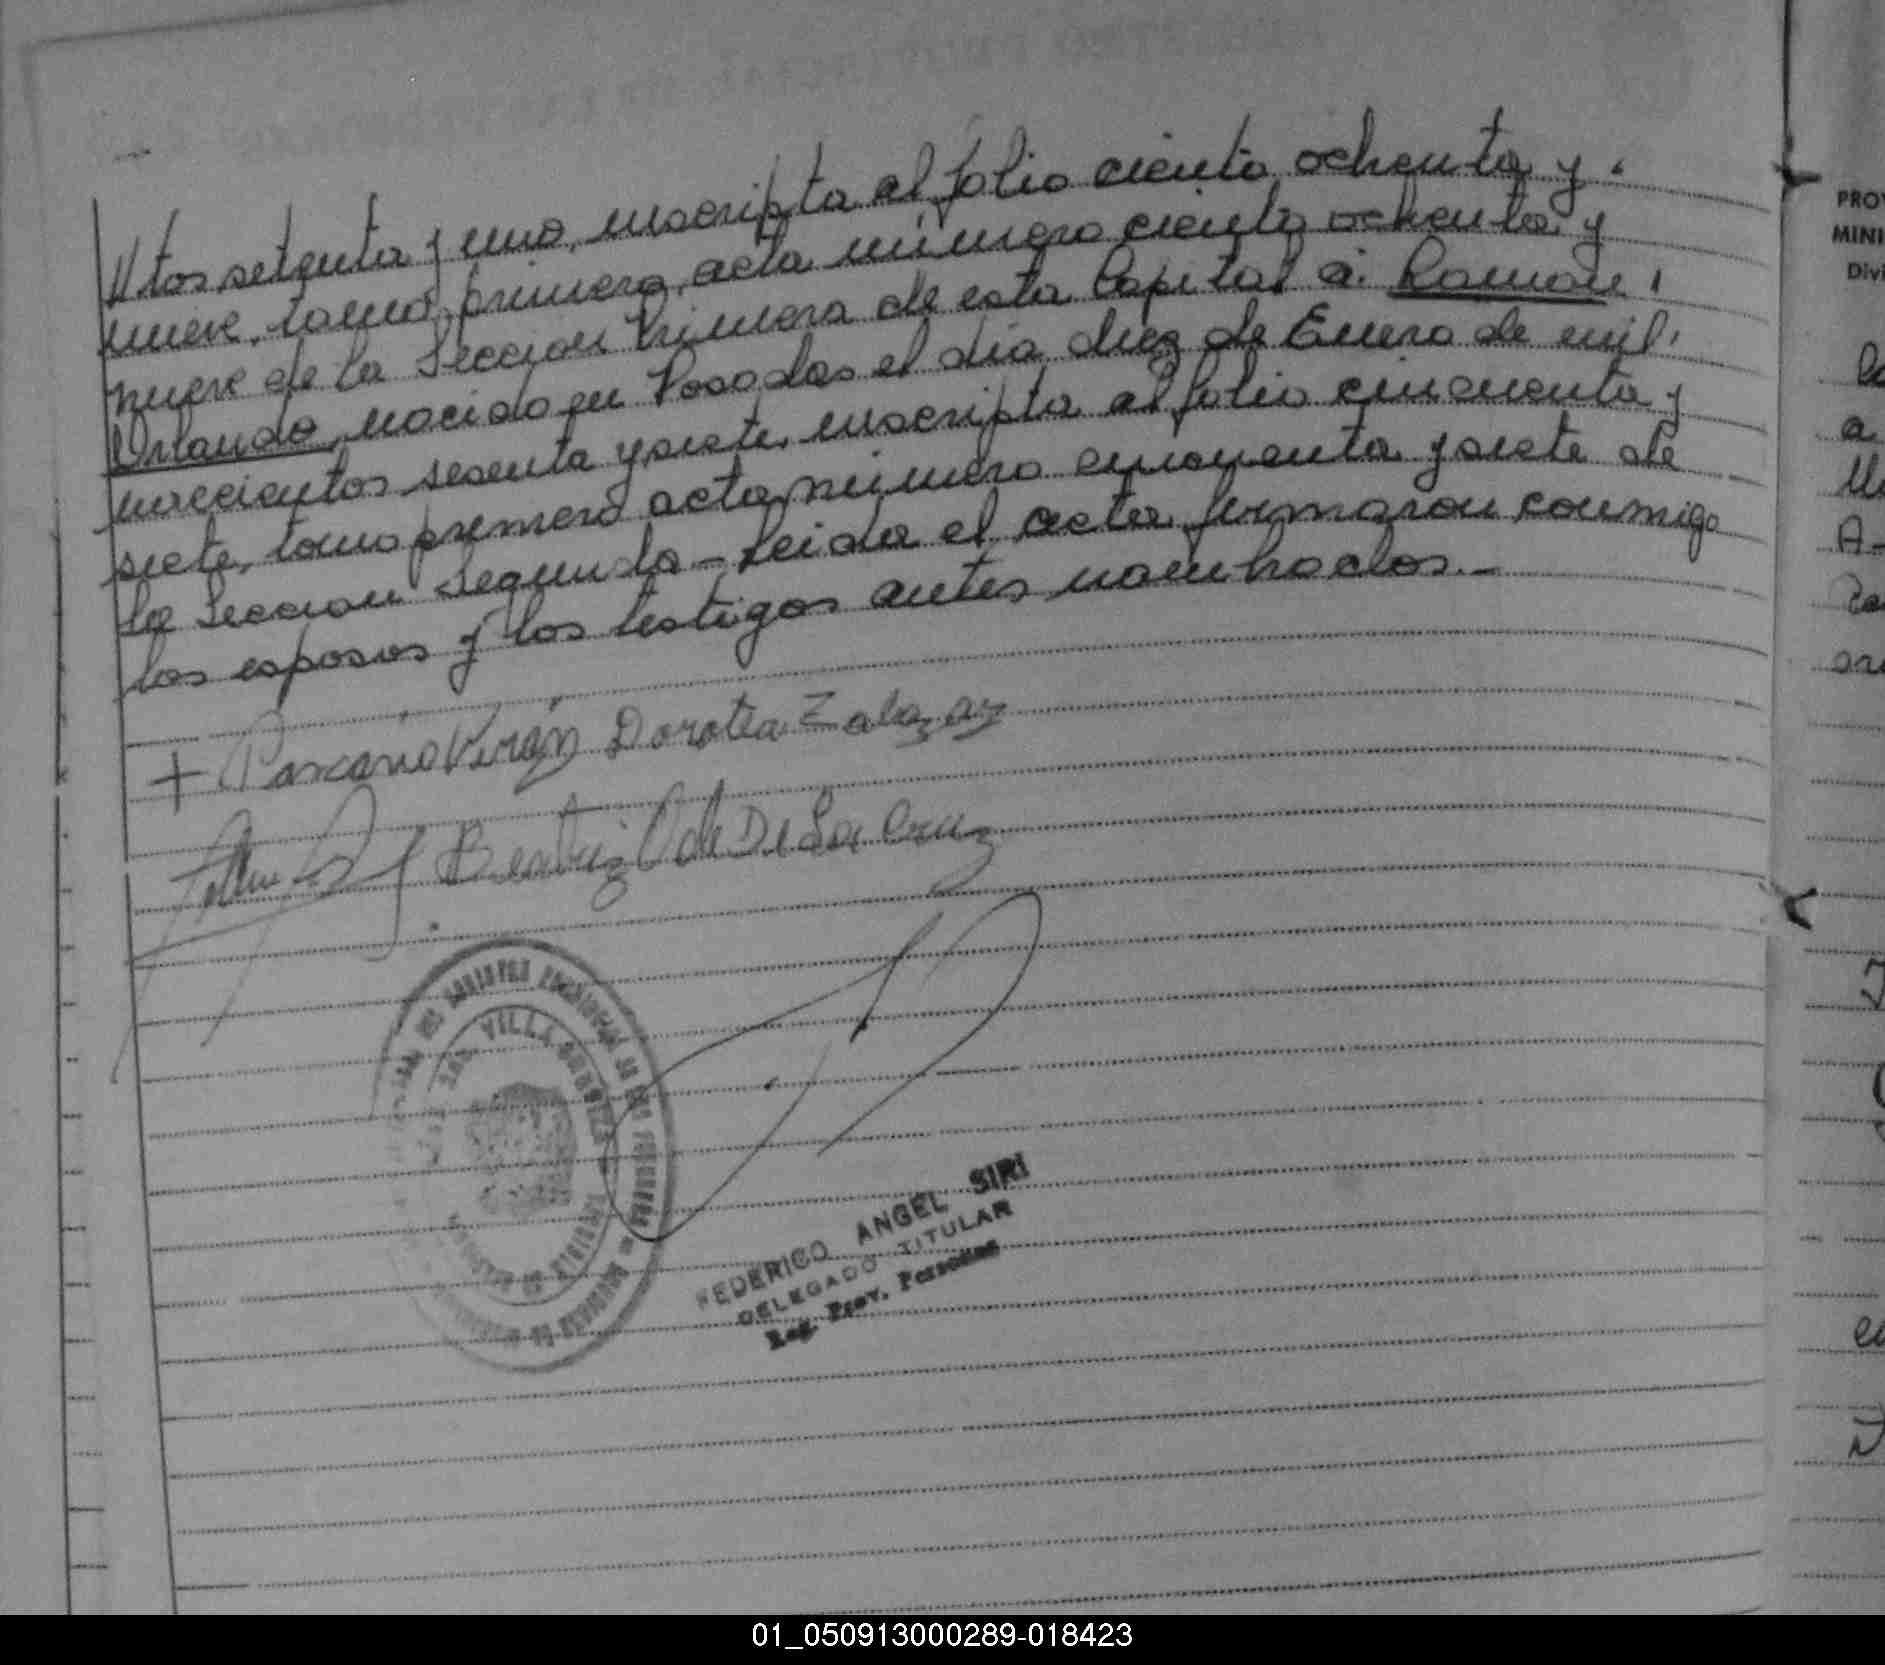 //tos setenta y uno, inscripta al folio ciento ochenta y
nueve, tomo primero, acta número ciento ochenta y
nueve de la Sección Primera de esta Capital a: Ramon
Orlando, nacido en Posadas el día diez de Enero de mil
novecientos sesenta y siete, inscripta al folio cincuenta y
siete, tomo primero acta número cincuenta y siete de
la Sección Segunda - Leida el acta firmaron conmigo
los esposos y los testigos antes nombrados.-
+ Pascano Verón Dorotea Zalazar
Beatriz de De La Cruz
VILLA
FEDERICO ANGEL SIRI
DELEGADO TITULAR
Reg. Prov. Personas
PROV
MINI
Divi
01_050913000289-018423